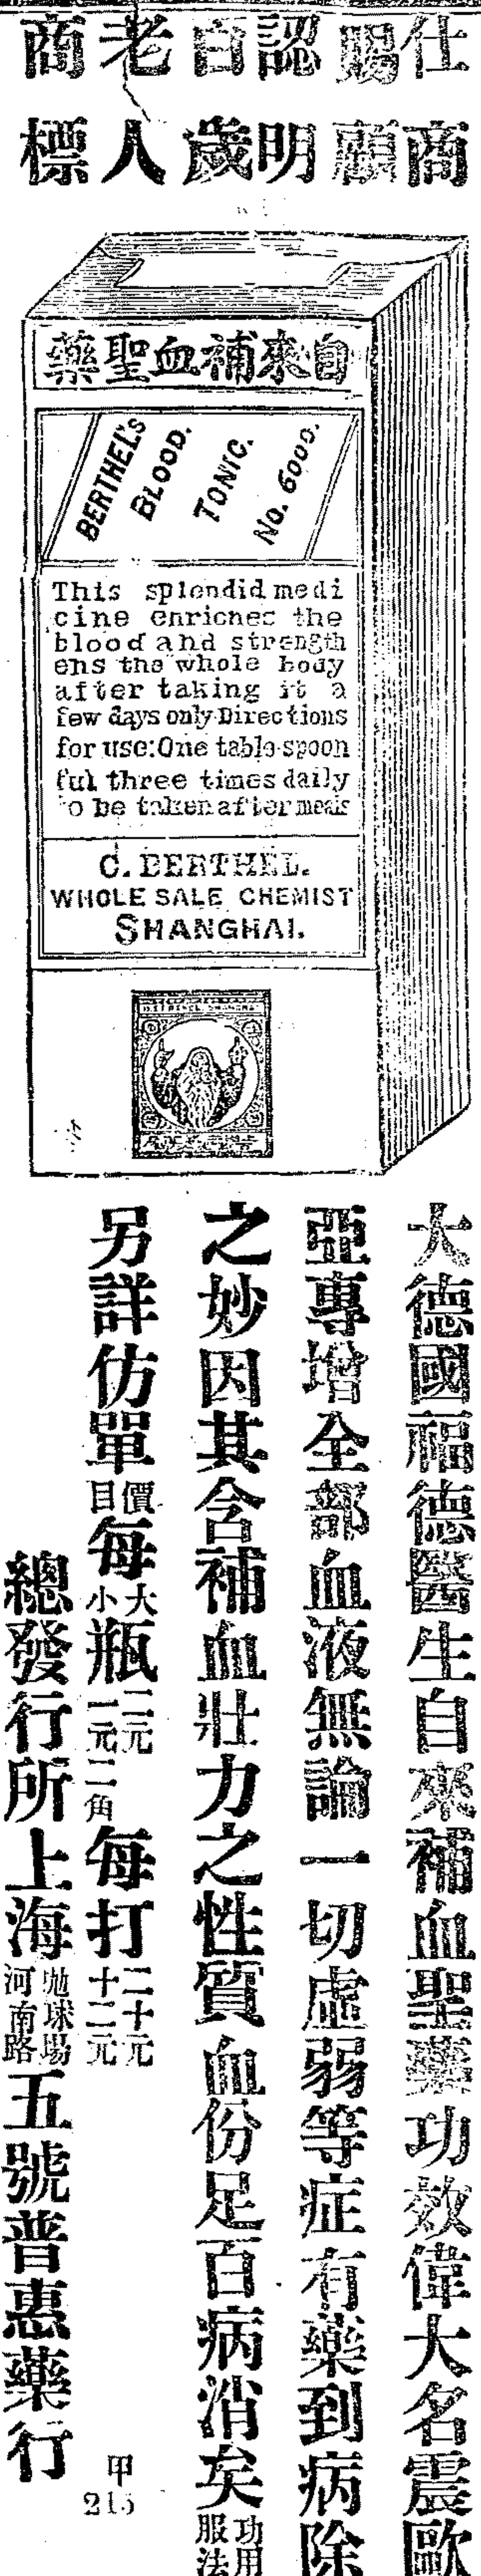 仕商
賜顧
認明
百歲
老人
商標
自來補血聖藥
BERTHEL'S
BLOOD.
TONIC.
No. 6000.
This splendid medi
cine enriches the
blood and strength
ens the whole body
after taking it a
few days only. Directions
for use: One table spoon
ful three times daily
to be taken after meals
C. BERTHEL.
WHOLE SALE CHEMIST
SHANGHAI.
大德國福德醫生自來補血聖藥功效偉大名震歐
亞專增全部血液無論一切虛弱等症有藥到病除
之妙因其含補血壯力之性質血份足百病消矣功用服法
另詳仿單價目每大小瓶二元一元二角每打二十元十二元
總發行所上海拋球場河南路五號普惠藥行
甲
215